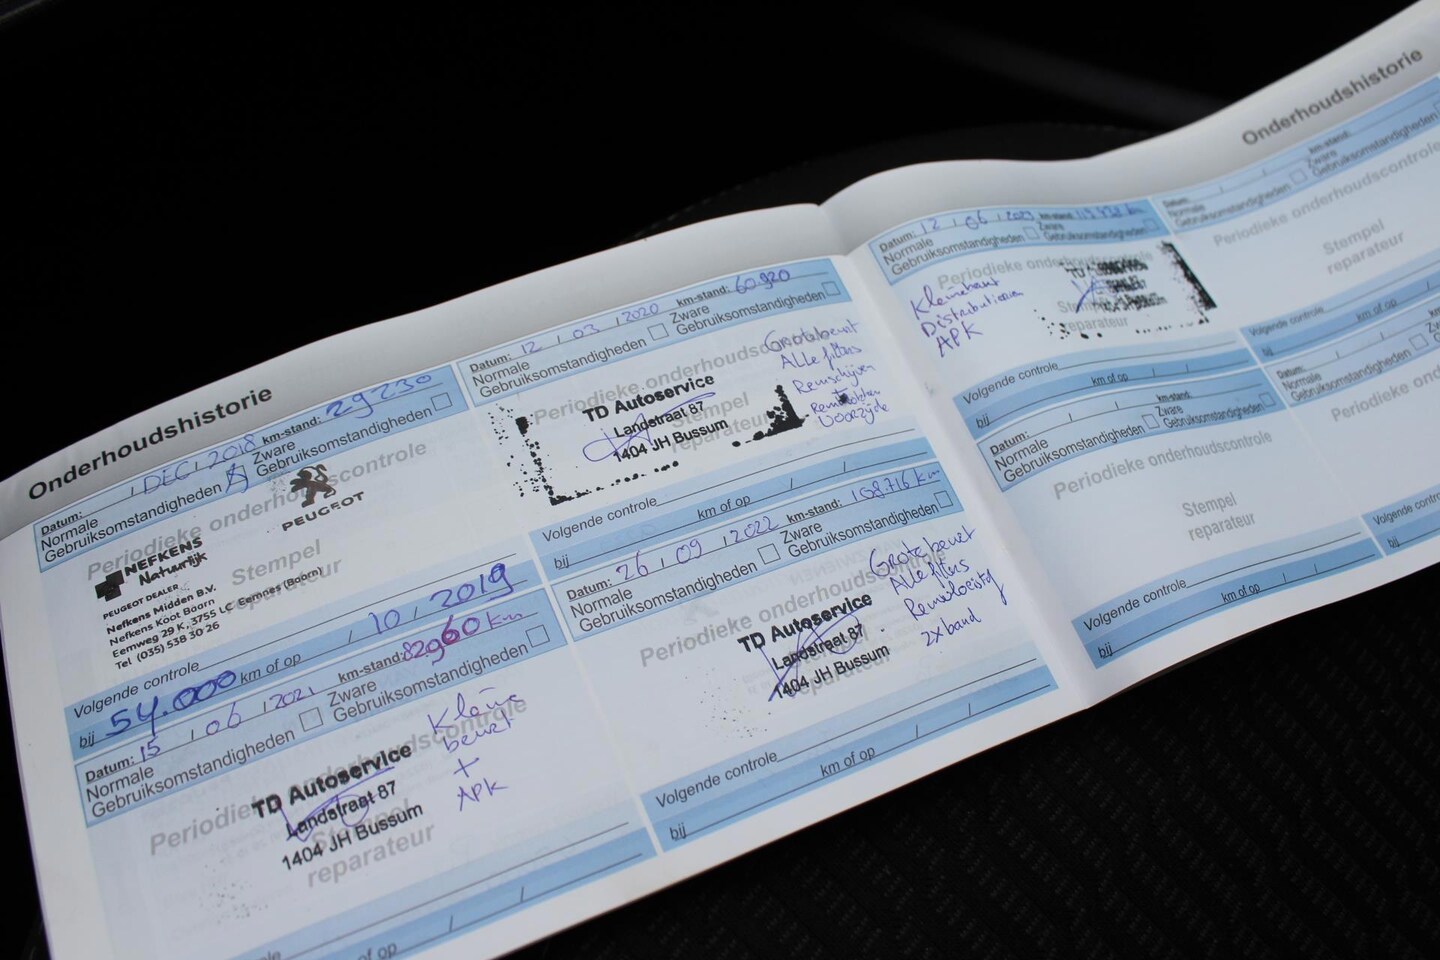 Onderhoudshistorie
Datum: DEC 2018 km-stand: 29230
Normale Gebruiksomstandigheden
Zware Gebruiksomstandigheden
Periodieke onderhoudscontrole
PEUGEOT
NEFKENS
Natuurlijk
Stempel reparateur
PEUGEOT DEALER
Nefkens Midden B.V.
Nefkens Koot Baarn
Eemweg 29 K, 3755 LC Eemnes (Baarn)
Tel (035) 538 30 26
Volgende controle
bij 54.000 km of op / 10 / 2019
Datum: 12 / 03 / 2020 km-stand: 60.920
Normale Gebruiksomstandigheden
Zware Gebruiksomstandigheden
Periodieke onderhoudscontrole
Stempel reparateur
TD Autoservice
Landstraat 87
1404 JH Bussum
Grote beurt
Alle filters
Remschijven
Voorzijde
Volgende controle
bij km of op / /
Datum: 15 / 06 / 2021 km-stand: 82960 km
Normale Gebruiksomstandigheden
Zware Gebruiksomstandigheden
Periodieke onderhoudscontrole
Stempel reparateur
TD Autoservice
Landstraat 87
1404 JH Bussum
Kleine
beurt
+
APK
Volgende controle
km of op / /
Datum: 26 / 09 / 2022 km-stand: 108.716 km
Normale Gebruiksomstandigheden
Zware Gebruiksomstandigheden
Periodieke onderhoudscontrole
TD Autoservice
Landstraat 87
1404 JH Bussum
reparateur
Grote beurt
Alle filters
Remvloeistof
2x band
Volgende controle
bij km of op / /
Onderhoudshistorie
Datum: 12 / 06 / 2023 km-stand:
Normale Gebruiksomstandigheden
Zware Gebruiksomstandigheden
Periodieke onderhoudscontrole
Stempel reparateur
Distributieriem
APK
Volgende controle
bij km of op / /
Datum: / / km-stand:
Normale Gebruiksomstandigheden
Zware Gebruiksomstandigheden
Periodieke onderhoudscontrole
Stempel reparateur
Volgende controle
bij km of op / /
Datum: / / km-stand:
Normale Gebruiksomstandigheden
Zware Gebruiksomstandigheden
Periodieke onderhoudscontrole
Stempel reparateur
Volgende controle
bij km of op
Datum:
Normale Gebruiksomstandigheden
Periodieke
Volgende controle
bij